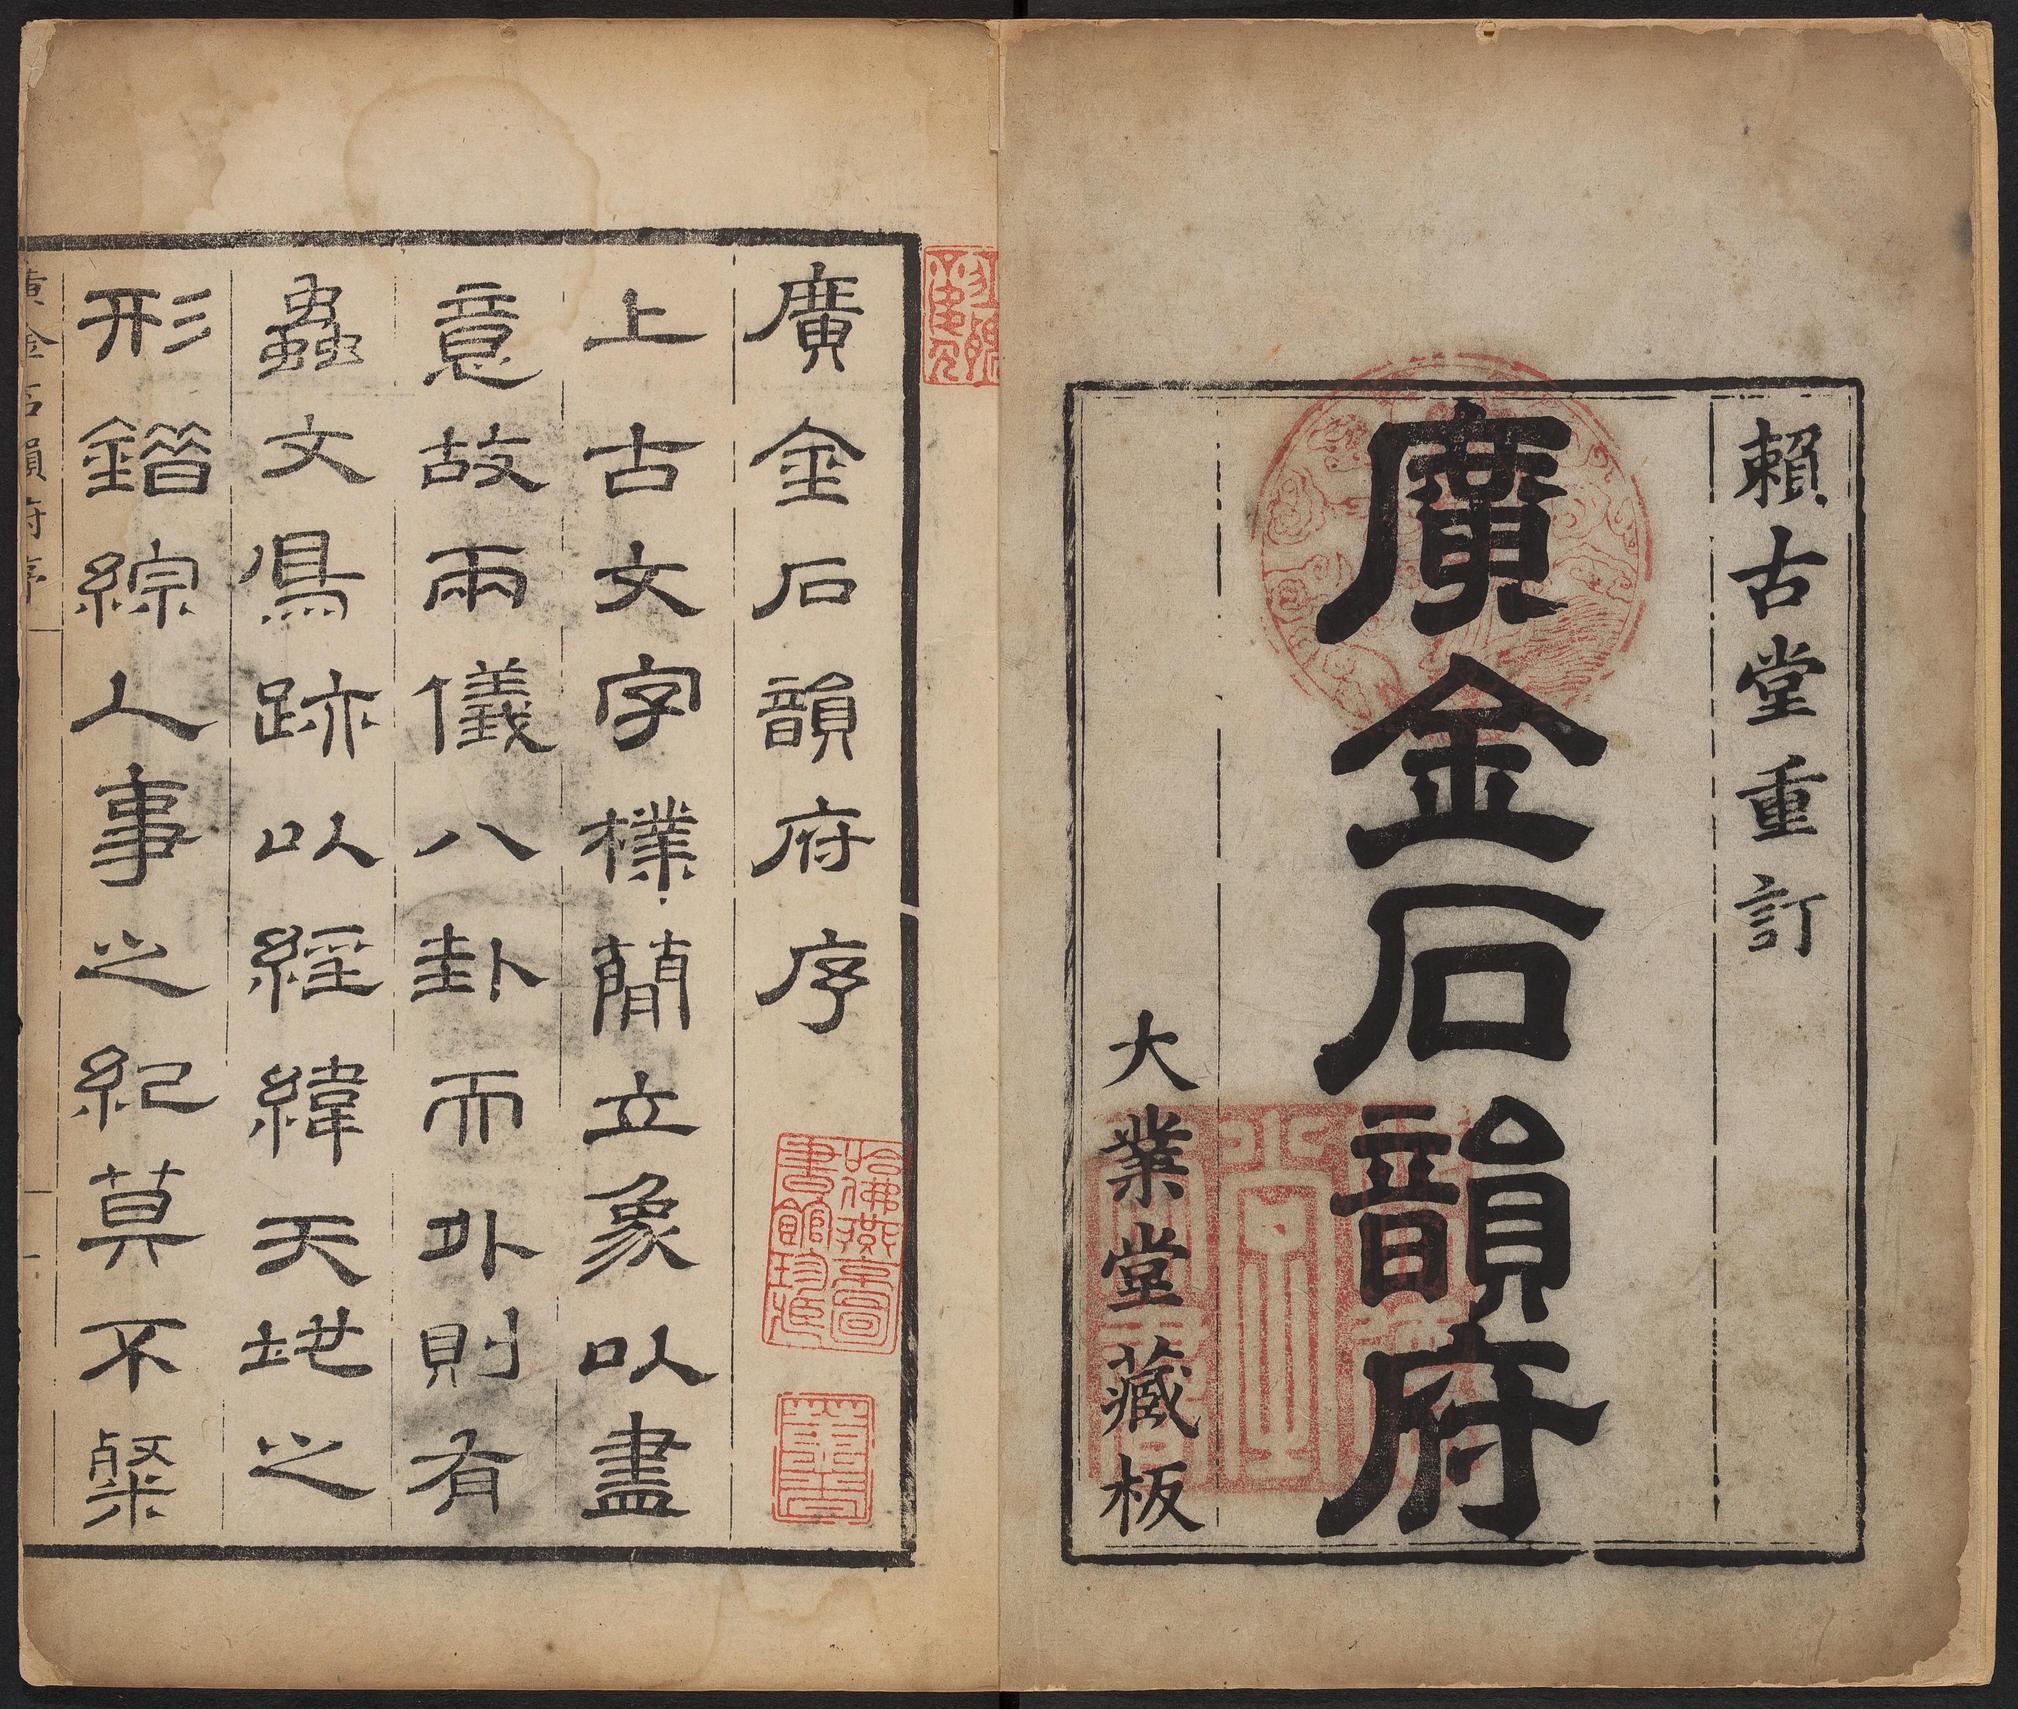 賴古堂重訂
廣金石韻府
大業堂藏板
廣金石韻府序
上古文字樸簡立象以盡
意故兩儀八卦而外則有
蟲文鳥跡以經緯天地之
形錯綜人事之紀莫不粲
廣金石韻府序
一
哈佛燕京圖書館珍藏